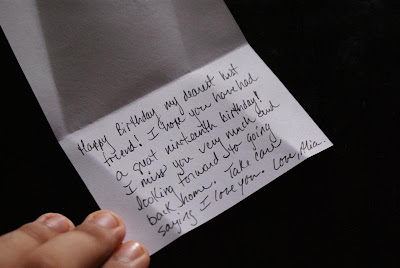 Happy Birthday my dearest best
friend! I hope you have had
a great nineteenth birthday!
I miss you very much and
looking forward to going
back home. Take care
saying I love you. Love, Alia.